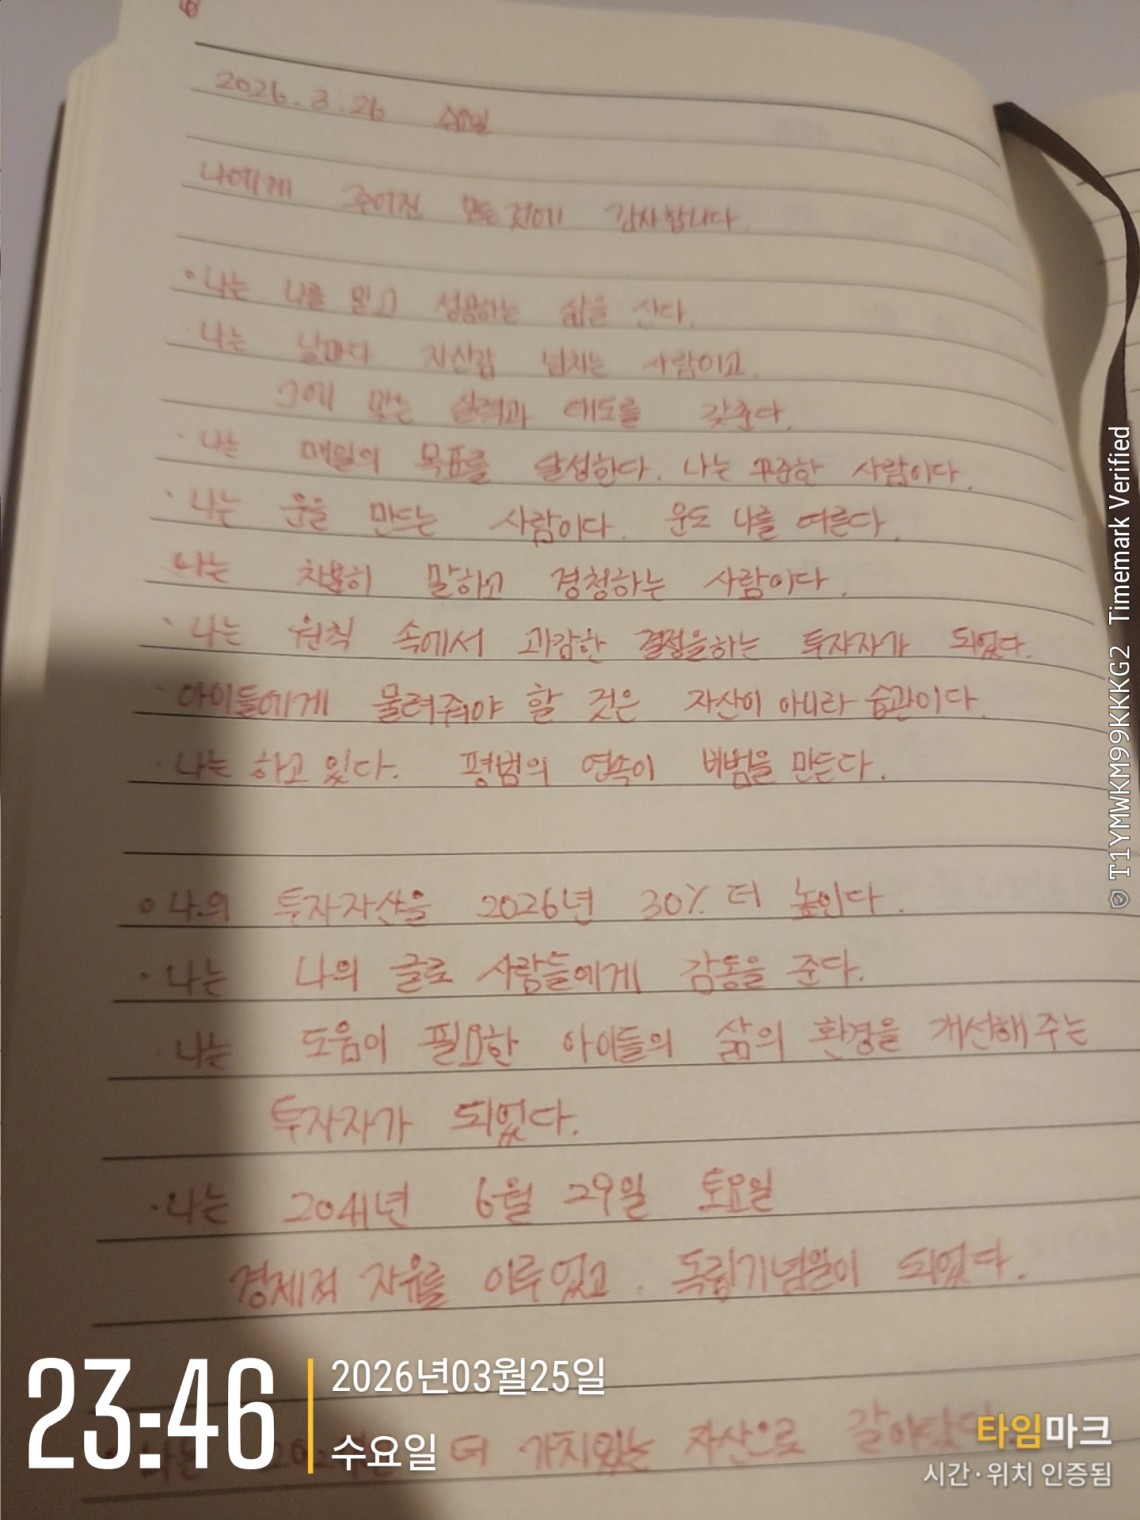 2026. 3. 26 수요일
나에게 주어진 모든 것에 감사합니다.
· 나는 나를 믿고 성공하는 삶을 산다.
· 나는 날마다 자신감 넘치는 사람이고,
그에 맞는 실력과 태도를 갖춘다.
· 나는 매일의 목표를 달성한다. 나는 꾸준한 사람이다.
· 나는 운을 만드는 사람이다. 운도 나를 따른다.
나는 차분히 말하고 경청하는 사람이다.
· 나는 원칙 속에서 과감한 결정을하는 투자자가 되었다.
· 아이들에게 물려줘야 할 것은 자산이 아니라 습관이다.
· 나는 하고 있다. 평범의 연속이 비범을 만든다.
○ 나의 투자자산을 2026년 30% 더 높인다.
· 나는 나의 글로 사람들에게 감동을 준다.
나는 도움이 필요한 아이들의 삶의 환경을 개선해 주는
투자자가 되었다.
· 나는 2041년 6월 29일 토요일
경제적 자유를 이루었고, 독립기념일이 되었다.
더 가치있는 자산으로 갈아탔다
23:46
2026년03월25일
수요일
타임마크
시간·위치 인증됨
T1YMWKM99KKKG2 Timemark Verified